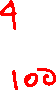 4
100